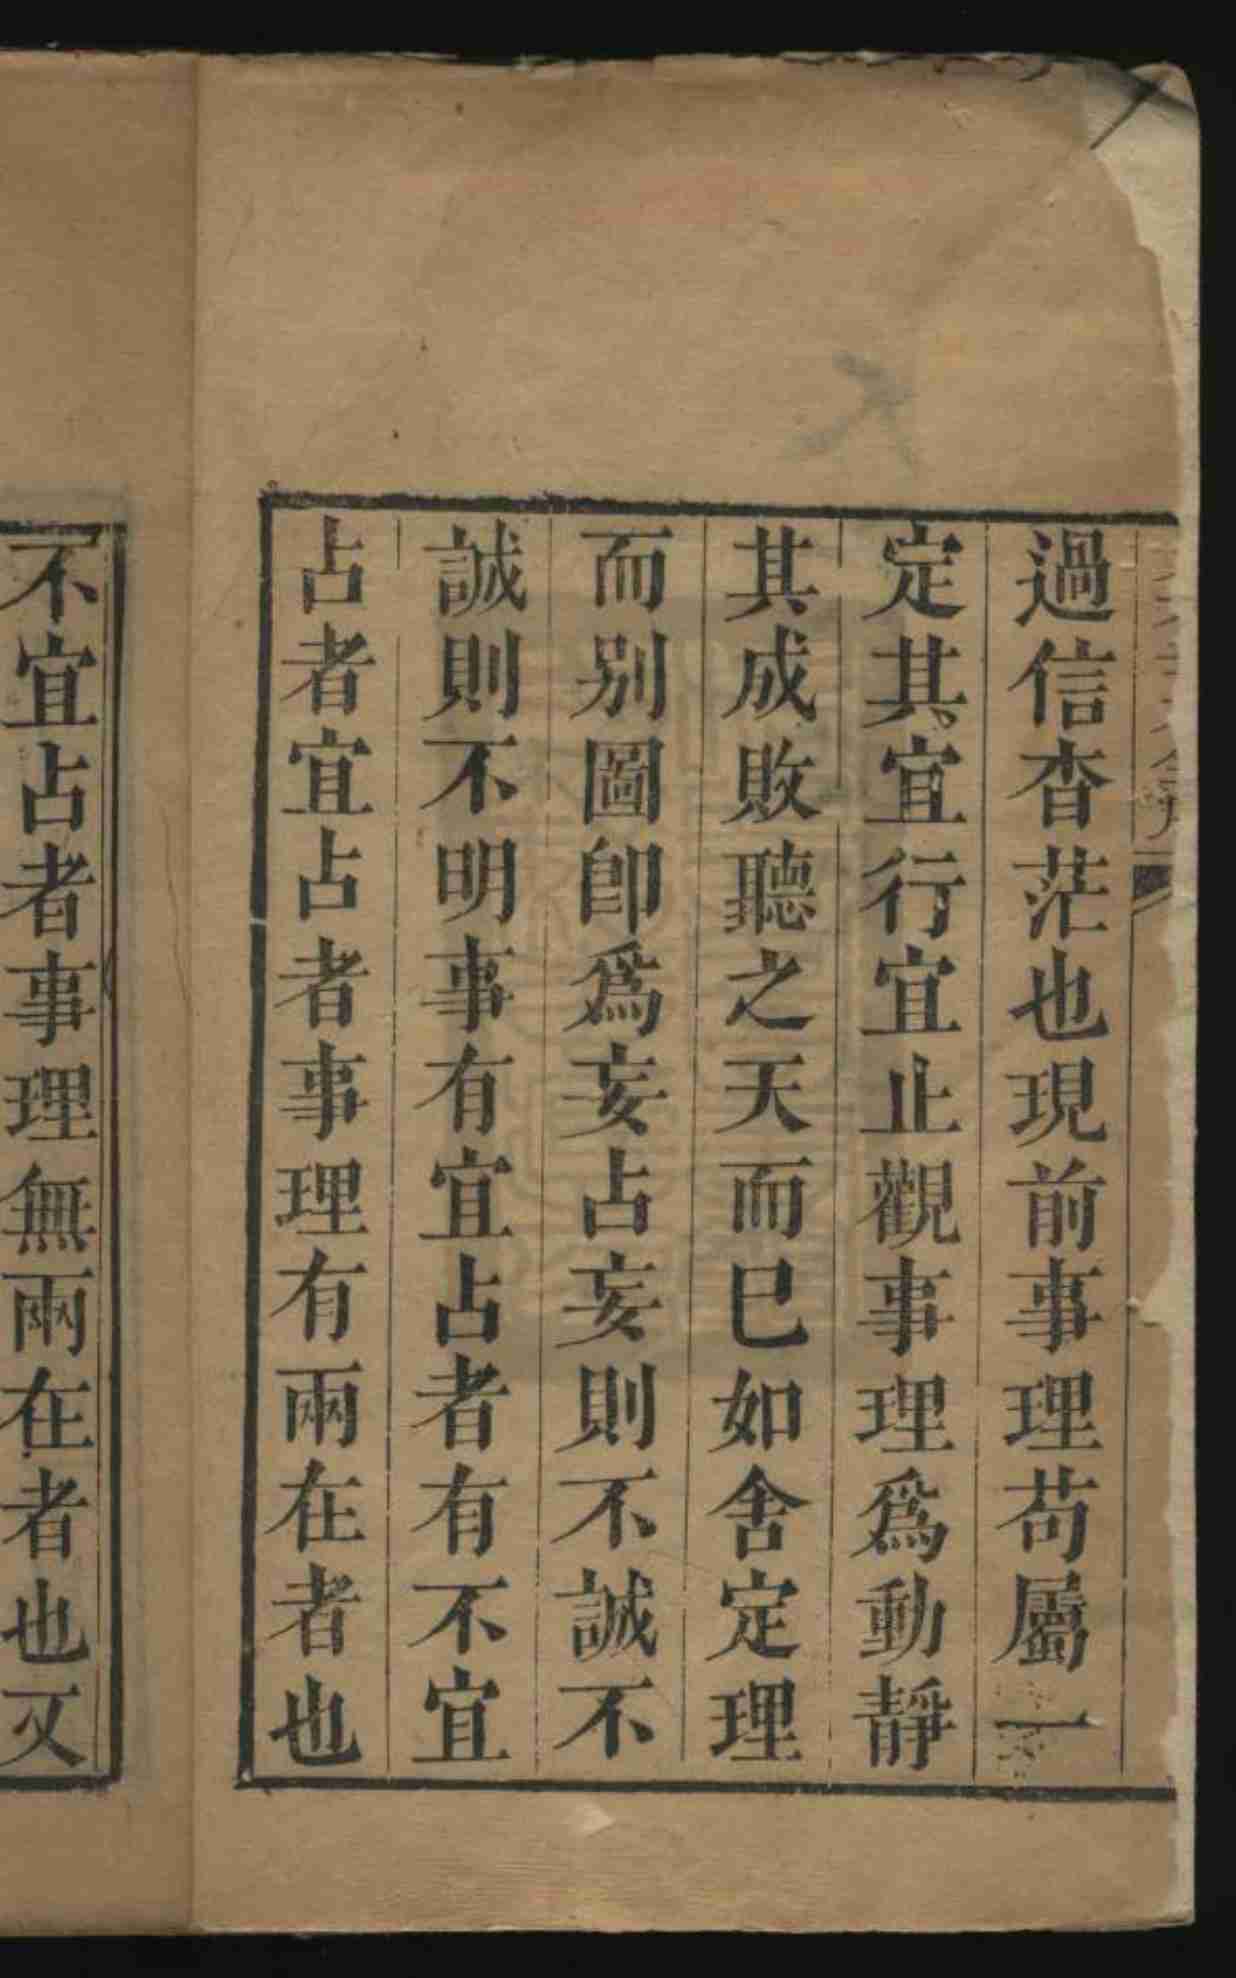 過信杳茫也現前事理苟屬一
定其宜行宜止觀事理爲動靜
其成敗聽之天而已如舍定理
而別圖卽爲妄占妄則不誠不
誠則不明事有宜占者有不宜
占者宜占者事理有兩在者也
不宜占者事理無兩在者也又